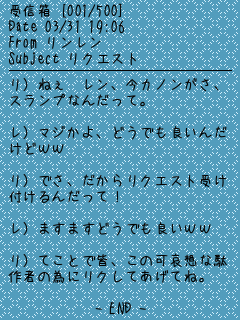 受信箱 [001/500]
Date 03/31 19:06
From リンレン
Subject リクエスト
リ) ねぇ　レン、今カノンがさ、
スランプなんだって。
レ) マジかよ、どうでも良いんだ
けどｗｗ
リ) でさ、だからリクエスト受け
付けるんだって！
レ) ますますどうでも良いｗｗ
リ) てことで皆、この可哀想な駄
作者の為にリクしてあげてね。
- END -